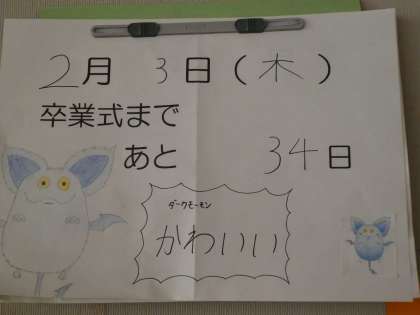 2月 3日(木)
卒業式まで
あと 34日
ダークモーモン
かわいい